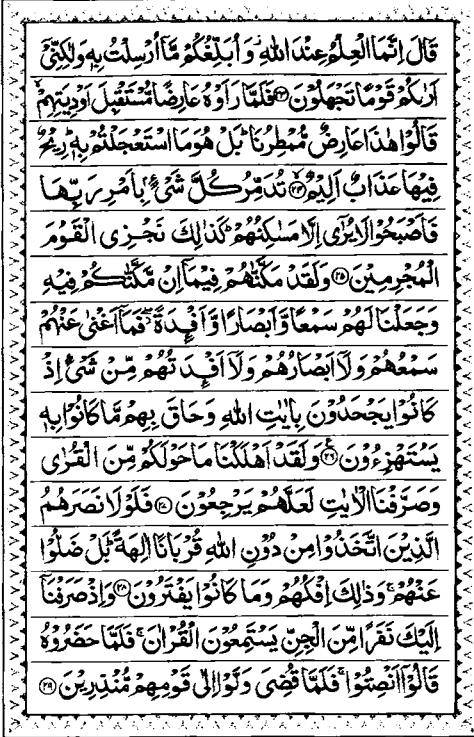 قَالَ اِنَّمَا الْعِلْمُ عِنْدَ اللّٰهِ ۖ وَاُبَلِّغُكُمْ مَّاۤ اُرْسِلْتُ بِهٖ وَلٰكِنِّىْۤ
اَرٰىكُمْ قَوْمًا تَجْهَلُوْنَ ﴿۲۳﴾ فَلَمَّا رَاَوْهُ عَارِضًا مُّسْتَقْبِلَ اَوْدِيَتِهِمْ ۙ
قَالُوْا هٰذَا عَارِضٌ مُّمْطِرُنَا ؕ بَلْ هُوَ مَا اسْتَعْجَلْتُمْ بِهٖ ؕ رِيْحٌ
فِيْهَا عَذَابٌ اَلِيْمٌ ۙ ﴿۲۴﴾ تُدَمِّرُ كُلَّ شَىْءٍۭ بِاَمْرِ رَبِّهَا
فَاَصْبَحُوْا لَا يُرٰٓى اِلَّا مَسٰكِنُهُمْ ؕ كَذٰلِكَ نَجْزِى الْقَوْمَ
الْمُجْرِمِيْنَ ﴿۲۵﴾ وَلَقَدْ مَكَّنّٰهُمْ فِيْمَاۤ اِنْ مَّكَّنّٰكُمْ فِيْهِ
وَجَعَلْنَا لَهُمْ سَمْعًا وَّاَبْصَارًا وَّاَفْـِٕدَةً ۖ فَمَاۤ اَغْنٰى عَنْهُمْ
سَمْعُهُمْ وَلَاۤ اَبْصَارُهُمْ وَلَاۤ اَفْـِٕدَتُهُمْ مِّنْ شَىْءٍ اِذْ
كَانُوْا يَجْحَدُوْنَ بِاٰيٰتِ اللّٰهِ وَحَاقَ بِهِمْ مَّا كَانُوْا بِهٖ
يَسْتَهْزِءُوْنَ ﴿۲۶﴾ وَلَقَدْ اَهْلَكْنَا مَا حَوْلَكُمْ مِّنَ الْقُرٰى
وَصَرَّفْنَا الْاٰيٰتِ لَعَلَّهُمْ يَرْجِعُوْنَ ﴿۲۷﴾ فَلَوْلَا نَصَرَهُمُ
الَّذِيْنَ اتَّخَذُوْا مِنْ دُوْنِ اللّٰهِ قُرْبَانًا اٰلِهَةً ؕ بَلْ ضَلُّوْا
عَنْهُمْ ۚ وَذٰلِكَ اِفْكُهُمْ وَمَا كَانُوْا يَفْتَرُوْنَ ﴿۲۸﴾ وَاِذْ صَرَفْنَاۤ
اِلَيْكَ نَفَرًا مِّنَ الْجِنِّ يَسْتَمِعُوْنَ الْقُرْاٰنَ ۚ فَلَمَّا حَضَرُوْهُ
قَالُوْۤا اَنْصِتُوْا ۚ فَلَمَّا قُضِىَ وَلَّوْا اِلٰى قَوْمِهِمْ مُّنْذِرِيْنَ ﴿۲۹﴾